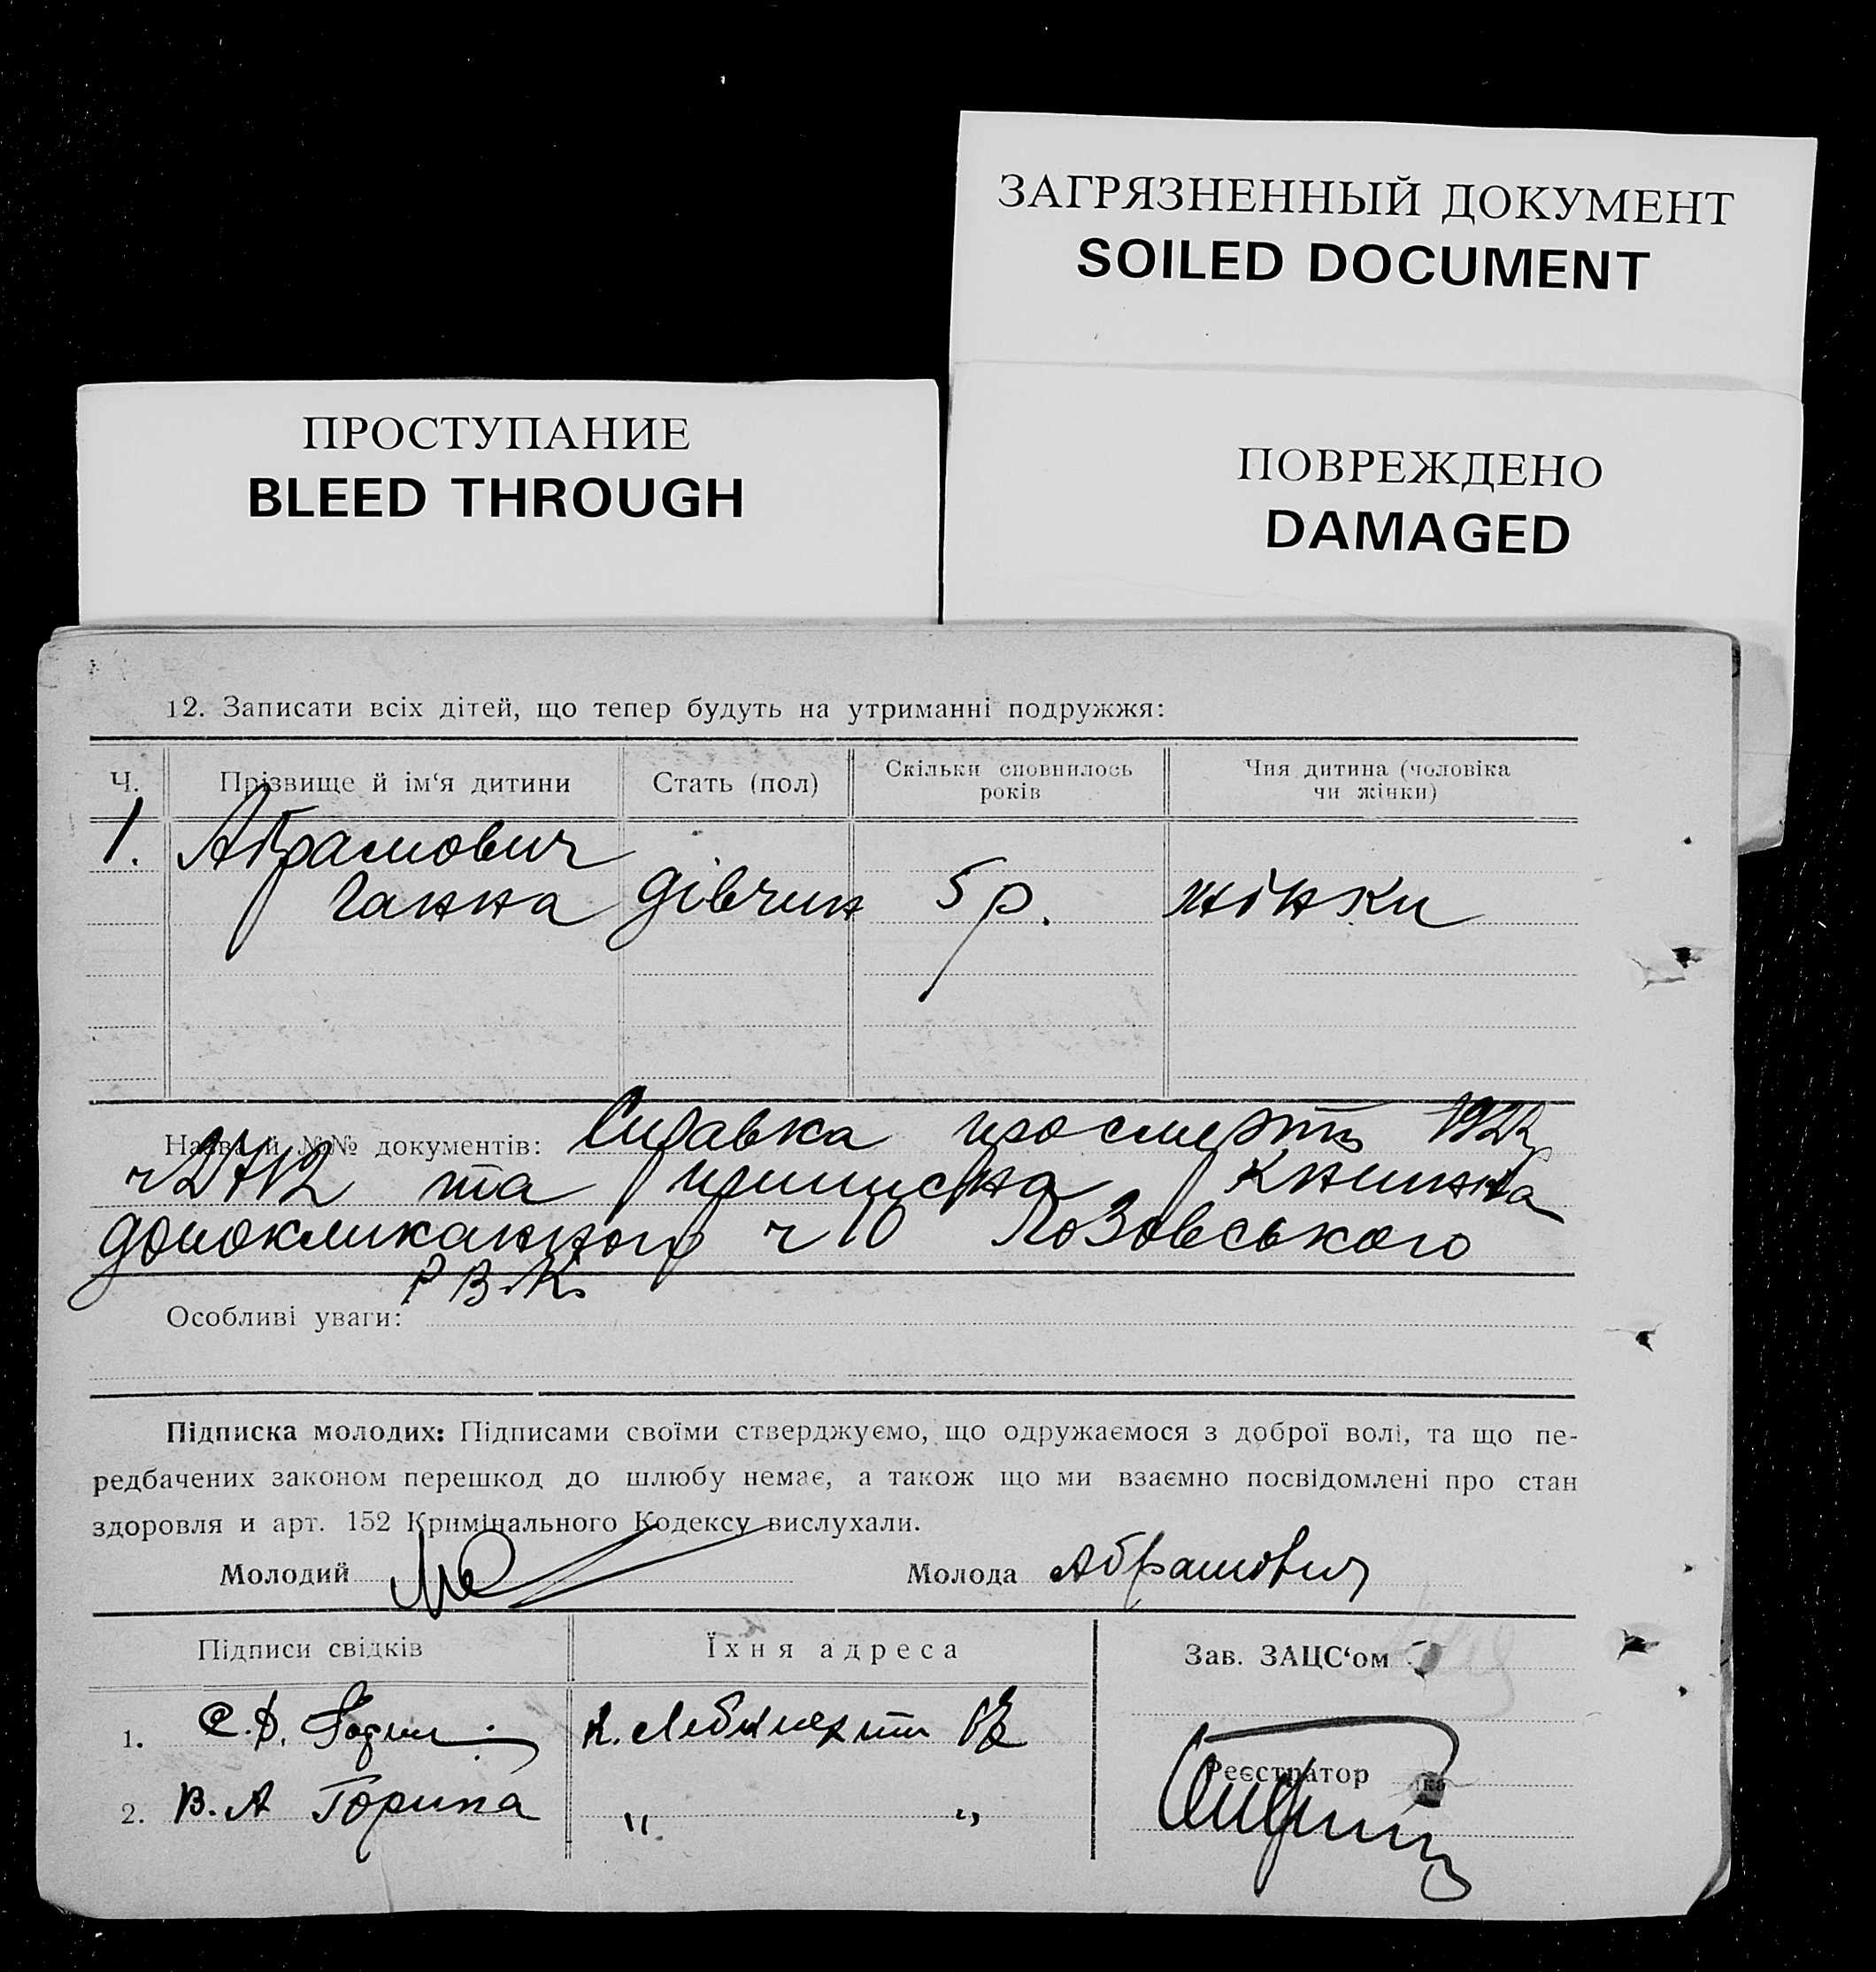 ЗАГРЯЗНЕННЫЙ ДОКУМЕНТ
SOILED DOCUMENT
ПРОСТУПАНИЕ
BLEED THROUGH
ПОВРЕЖДЕНО
DAMAGED
12. Записати всіх дітей, що тепер будуть на утриманні подружжя:
Ч. Прізвище й ім‘я дитини Стать (пол) Скільки сповнилось років Чия дитина (чоловіка чи жінки)
1. Абрамович
Ганна дівчин 5 р. жінки
Назва й №№ документів: Справка про смерть 1922
ч 2712 та приписна книжка
допокликанного ч 10 Лозовського
Р В.К.
Особливі уваги:
Підписка молодих: Підписами своїми стверджуємо, що одружаємося з доброї волі, та що пе-
редбачених законом перешкод до шлюбу немає, а також що ми взаємно посвідомлені про стан
здоровля и арт. 152 Кримінального Кодексу вислухали.
Молодий Молода Абрамович
Підписи свідків Їхня адреса Зав. ЗАЦС‘ом
1. С.D.
Реєстратор
2. В. А Горина " "